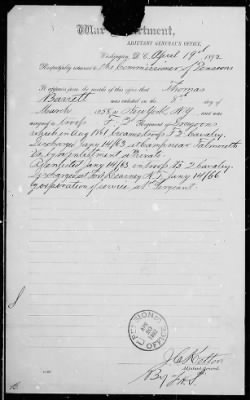 War Department,
ADJUTANT GENERAL'S OFFICE,
Washington, D. C. April 19th 1892
Respectfully returned to the Commissioner of Pensions
It appears from the records of this office that Thomas
Barrett was enlisted on the 8 day of
March 1858 at New York NY and was
assigned to Troop F 2d Regiment of Dragoons
which in Aug 1861 became troop F 2d Cavalry.
Discharged Jany 14/63 at camp near Falmouth
Va by reenlistment a Private.
Reenlisted Jany 14/63 in troop 2 Cavalry.
Discharged at Fort Kearney N.T. Jany 14/66
by expiration of service a 1st Sergeant.
PENSION OFFICE
J. C. Kelton
Adjutant General.
By